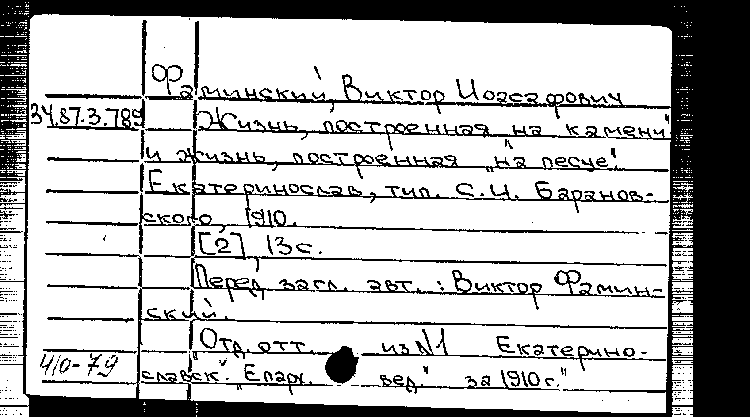 Фаминский, Виктор Иоасафович
34.87.3.789 Жизнь, построенная „на камени"
и жизнь, построенная „на песце".
Екатеринослав, тип. С.И. Баранов-
ского, 1910.
[2], 13 с.
Перед загл. авт.: Виктор Фамин-
ский.
"Отд. отт. из №1 Екатерино-
410-79 славск. „Епарх. вед." за 1910 г."